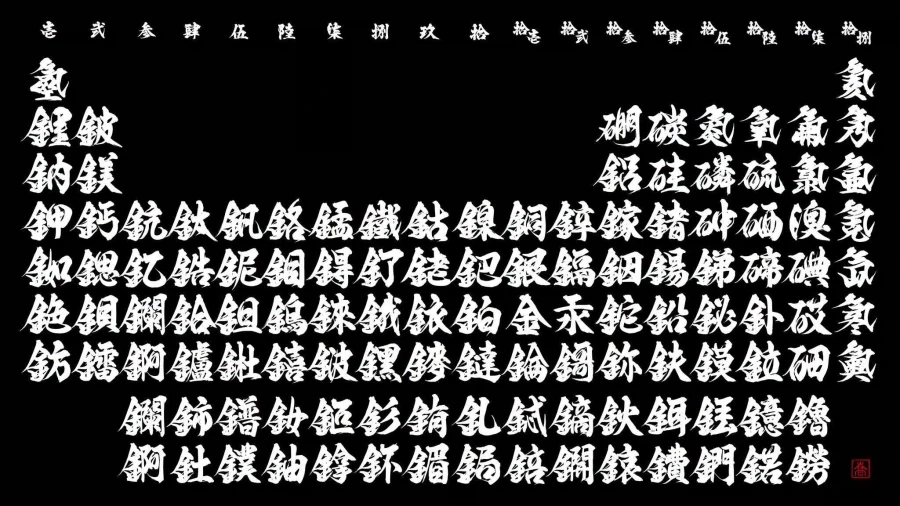 壱 弐 参 肆 伍 陸 柒 捌 玖 拾 拾壱 拾弐 拾参 拾肆 拾伍 拾陸 拾柒 拾捌
氫 氦
鋰 鈹 硼 碳 氮 氧 氟 氖
鈉 鎂 鋁 硅 磷 硫 氯 氬
鉀 鈣 鈧 鈦 釩 鉻 錳 鐵 鈷 鎳 銅 鋅 鎵 鍺 砷 硒 溴 氪
銣 鍶 釔 鋯 鈮 鉬 鍀 釕 銠 鈀 銀 鎘 銦 錫 銻 碲 碘 氙
銫 鋇 鑭 鉿 鉭 鎢 錸 鋨 銥 鉑 金 汞 鉈 鉛 鉍 釙 砹 氡
鈁 鐳 錒 鑪 𨧀 𨭎 𨨏 𨭆 䥑 鐽 錀 鎶 鉨 鈇 鏌 鉝 鿬 鿫
鑭 鈰 鐠 釹 鉕 釤 銪 釓 鋱 鏑 鈥 鉺 銩 鐿 鑥
錒 釷 鏷 鈾 鎿 鈈 鎇 鋦 錇 鐦 鎄 鐨 鍆 鍩 鐒